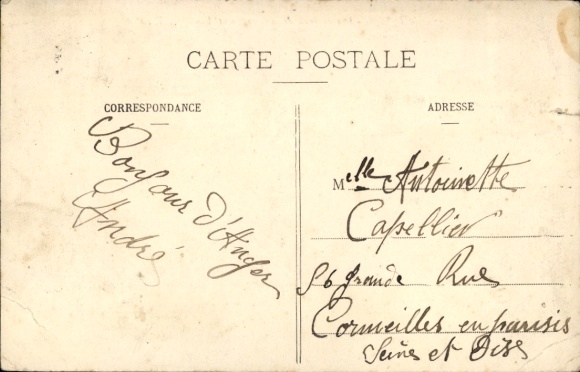 CARTE POSTALE
CORRESPONDANCE
Bonjour d'Anger
André
ADRESSE
Melle Antoinette
Capellier
56 grande Rue
Cormeilles en parisis
Seine et Oise